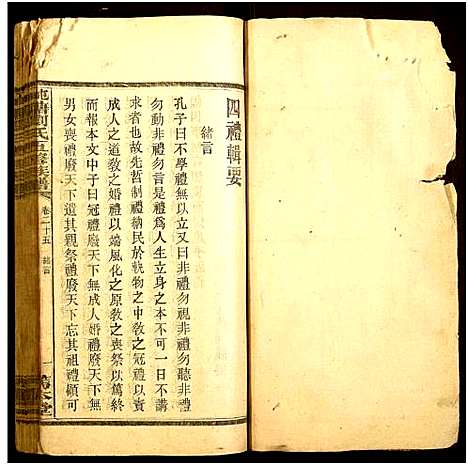 四禮輯要
緒言
孔子曰不學禮無以立又曰非禮勿視非禮勿聽非禮
勿動非禮勿言是禮爲人生立身之本不可一日不講
求者也故先哲制禮納民於之中敎之冠禮以責
成人之道敎之婚禮以端風化之原敎之喪祭以篤終
而報本文中子曰冠禮廢天下無成人婚禮廢天下無
男女喪禮廢天下遺其親祭禮廢天下忘其祖禮顧可
劉氏五修族譜
卷二十五
緒言
一
堂